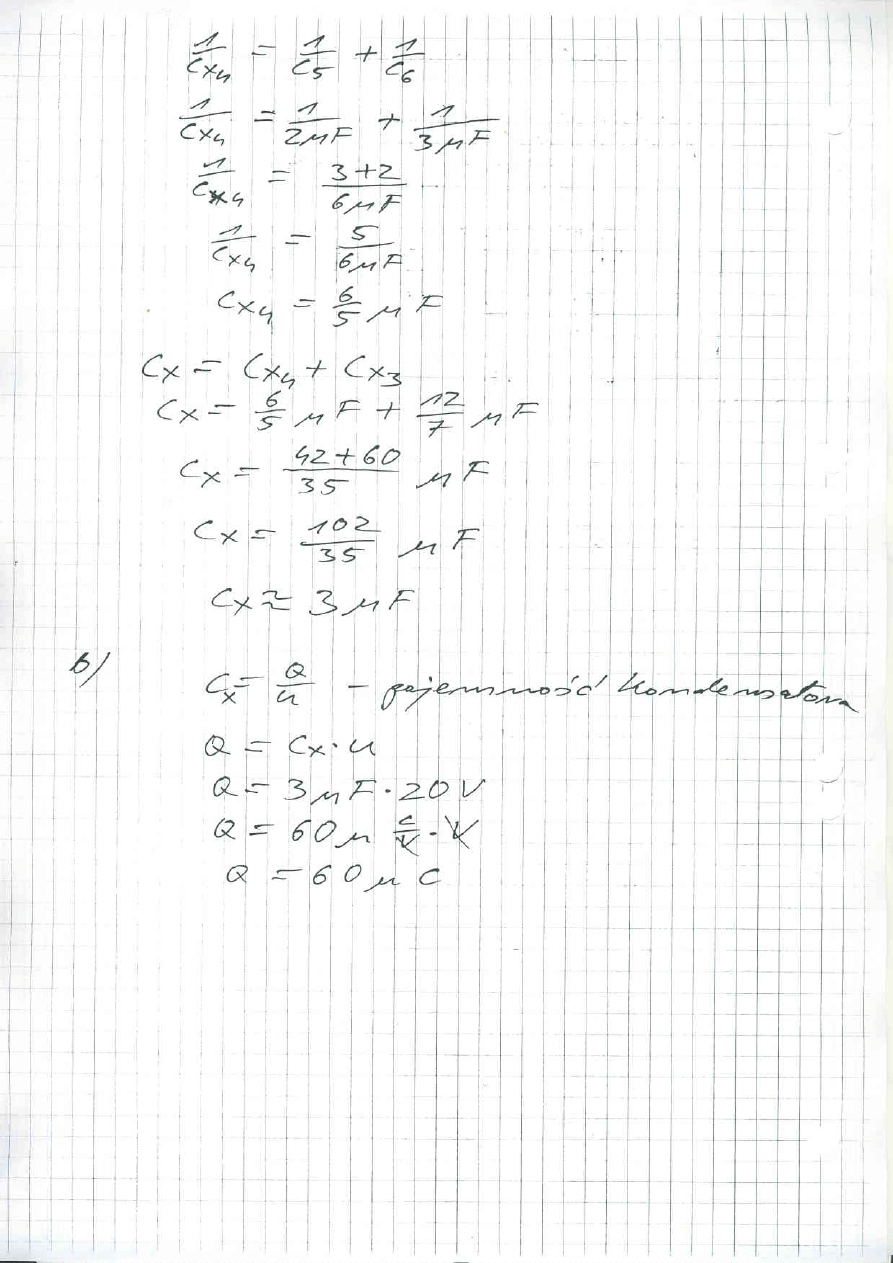 1/Cx4 = 1/C5 + 1/C6
1/Cx4 = 1/2μF + 1/3μF
1/Cx4 = 3+2/6μF
1/Cx4 = 5/6μF
Cx4 = 6/5 μF
Cx = Cx4 + Cx3
Cx = 6/5 μF + 12/7 μF
Cx = 42+60/35 μF
Cx = 102/35 μF
Cx ≈ 3μF
b) Cx = Q/U - pojemność kondensatora
Q = Cx·U
Q = 3μF·20V
Q = 60μ C/V·V
Q = 60μC